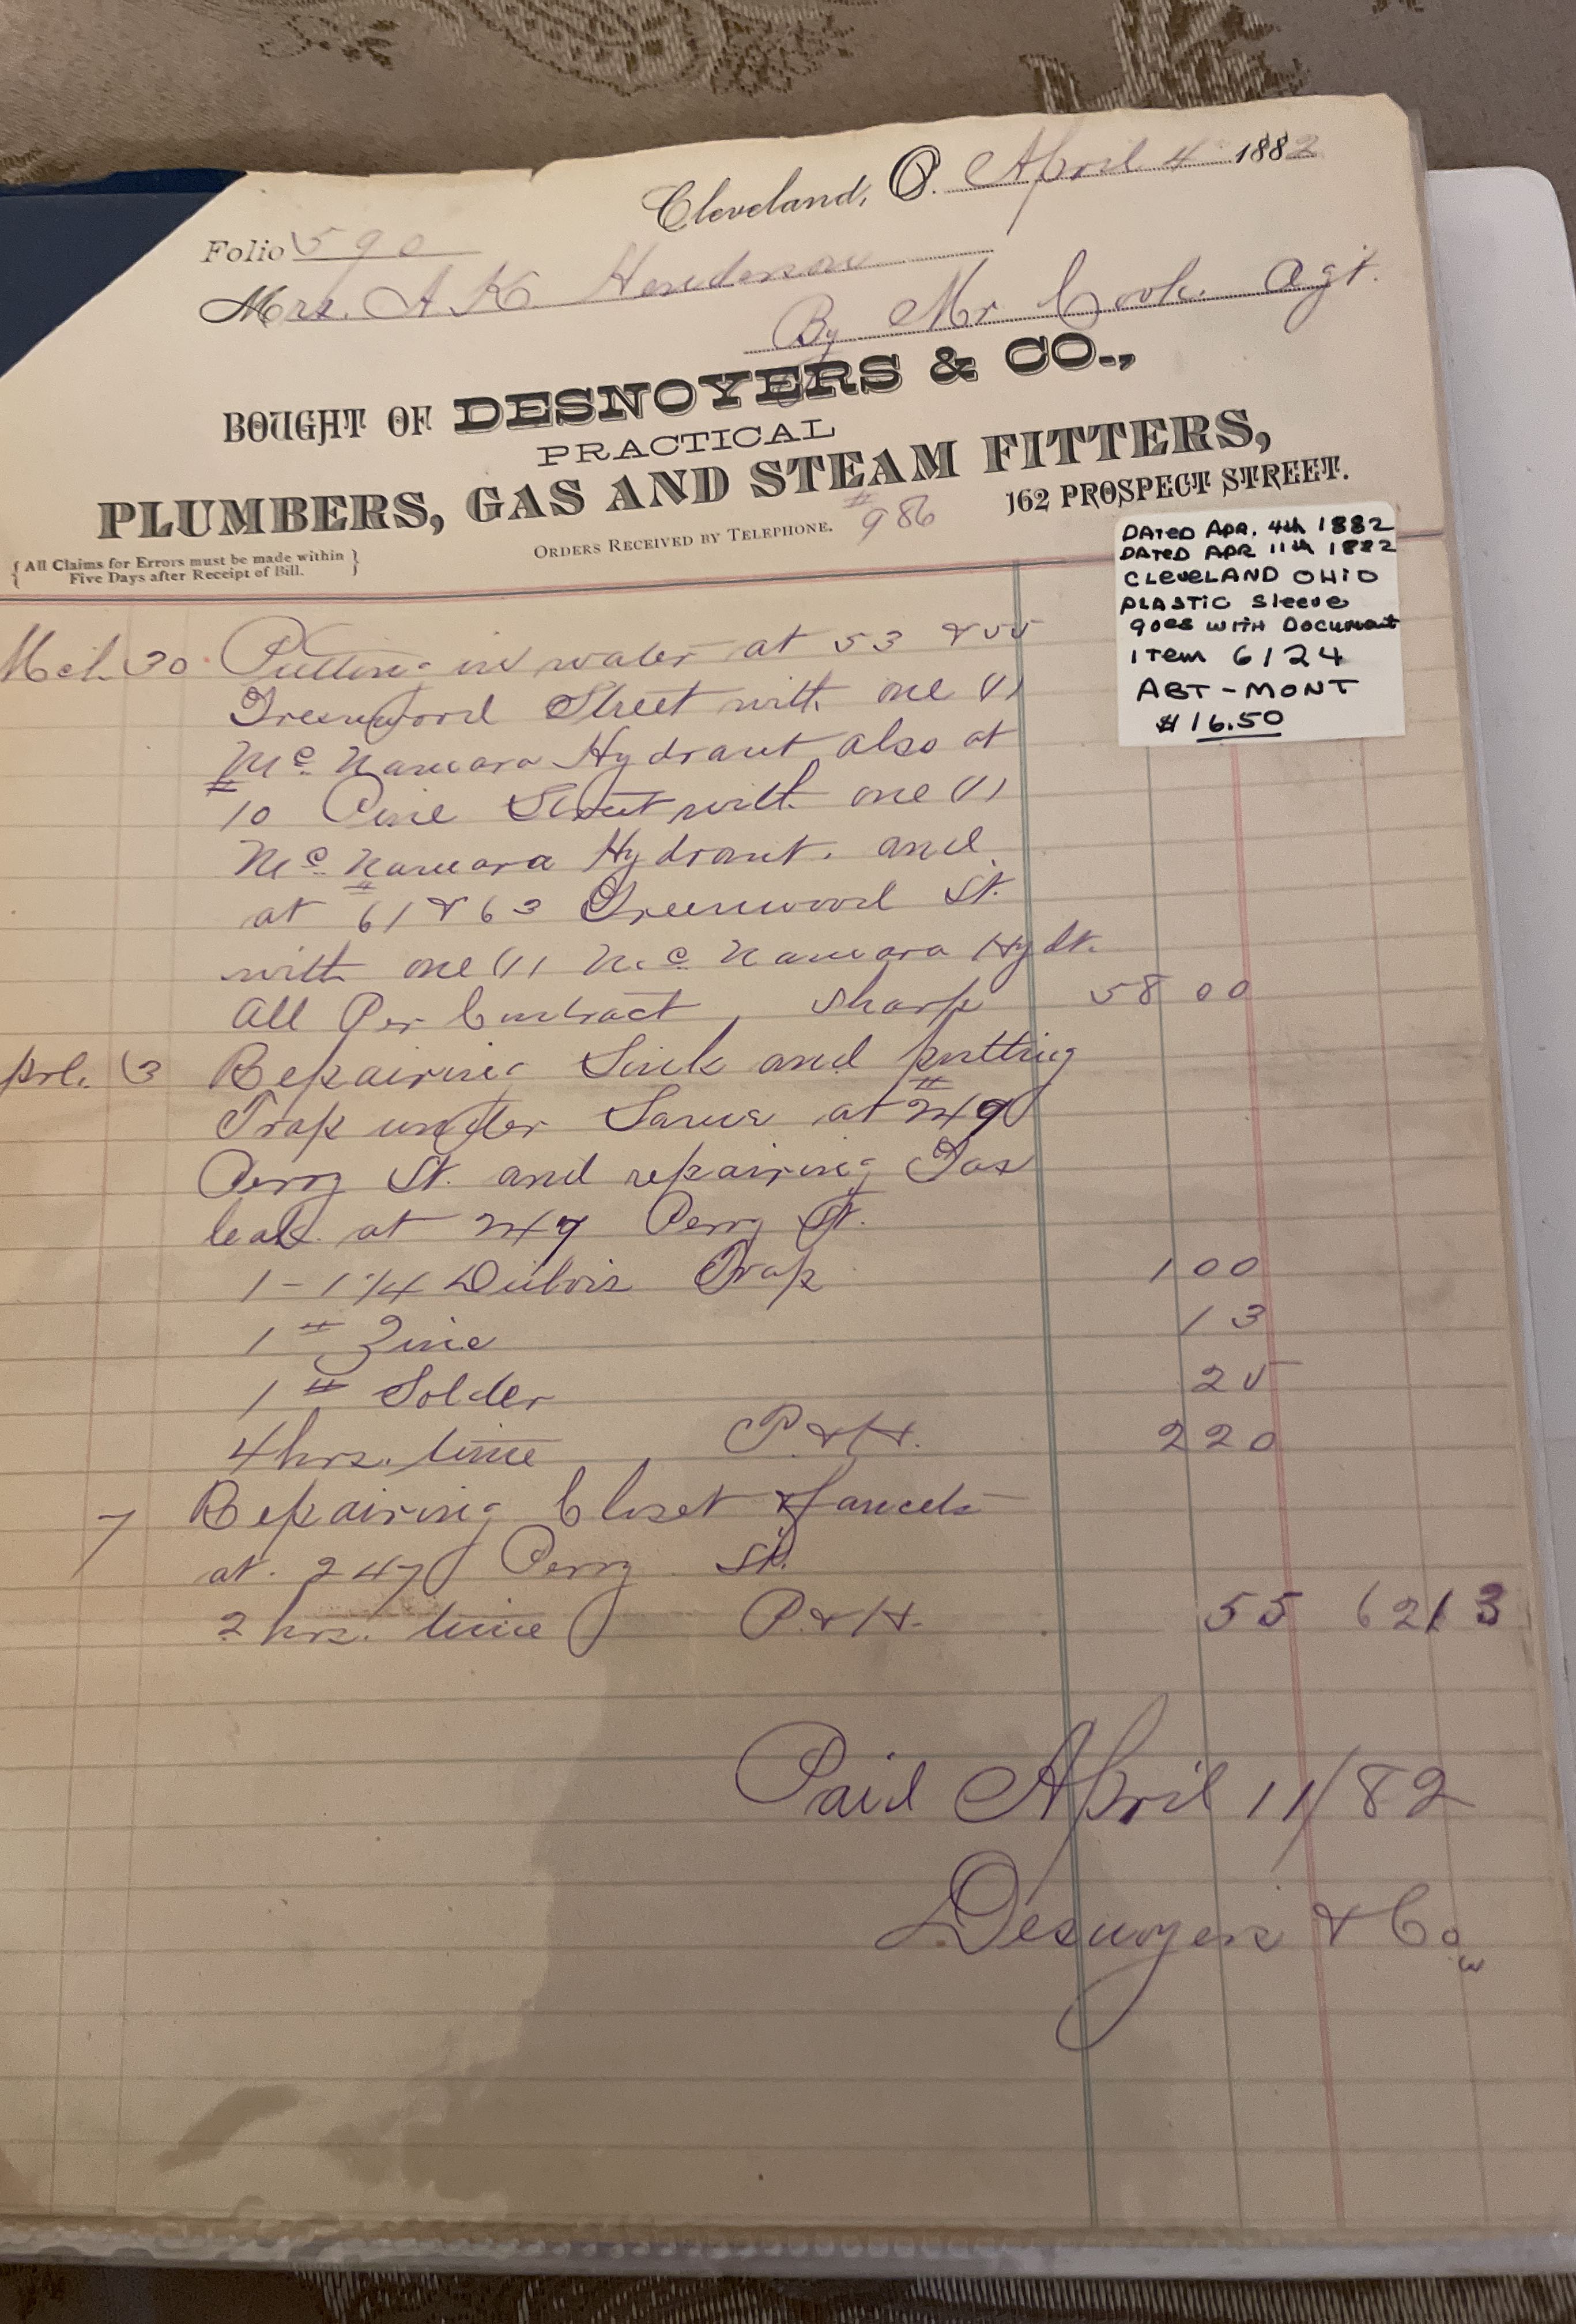 Cleveland, O. April 4 1882
Folio 590
Mrs. A K Henderson
By Mr Cook. Agt.
BOUGHT OF DESNOYERS & CO.,
PRACTICAL
PLUMBERS, GAS AND STEAM FITTERS,
162 PROSPECT STREET.
ORDERS RECEIVED BY TELEPHONE. # 986
{ All Claims for Errors must be made within
Five Days after Receipt of Bill. }
DATED APR. 4th 1882
DATED APR 11th 1882
CLEVELAND OHIO
PLASTIC Sleeve
goes WITH DOCUMENT
ITEM 6124
ABT - MONT
$16.50
Mch. 30 Putting in water at 53 & 55
Greenwood Street with one (1)
Mc Namara Hydrant also at
# 10 Pine Street with one (1)
Mc Namara Hydrant. and
at # 61 & 63 Greenwood St.
with one (1) Mc Namara Hydt.
All Per Contract, Sharp 58 00
prl. 3 Repairing Sink and putting
Trap under Same at # 249
Perry St. and repairing Gas
leak at 247 Perry St.
1 - 1 1/4 Dubois Trap 1 00
1 # Zinc 13
1 # Solder 25
4 hrs. time P. & H. 2 20
7 Repairing Closet & faucets
at. 247 Perry St.
2 hrs. time P. & H. 55 62 13
Paid April 11/82
Desnoyers & Co.